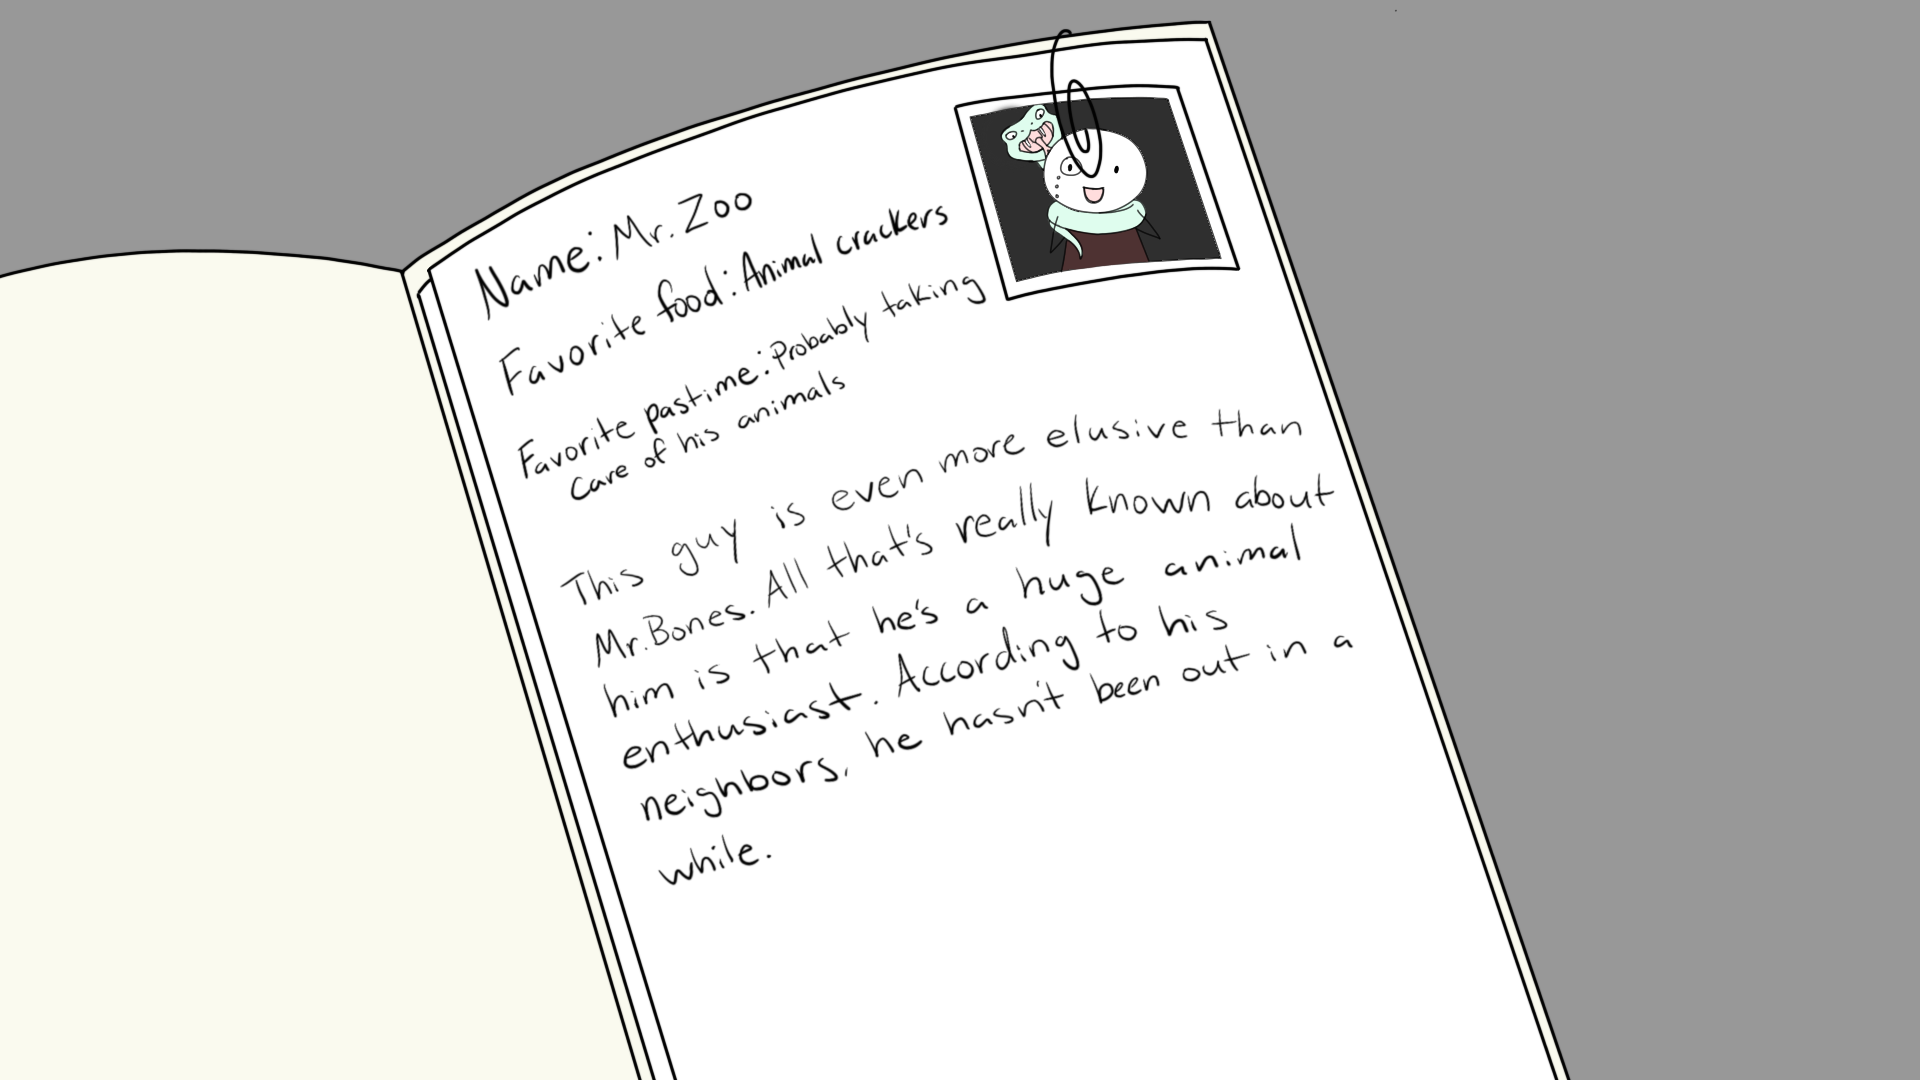 Name: Mr. Zoo
Favorite food: Animal crackers
Favorite pastime: Probably taking
care of his animals
This guy is even more elusive than
Mr. Bones. All that's really known about
him is that he's a huge animal
enthusiast. According to his
neighbors, he hasn't been out in a
while.